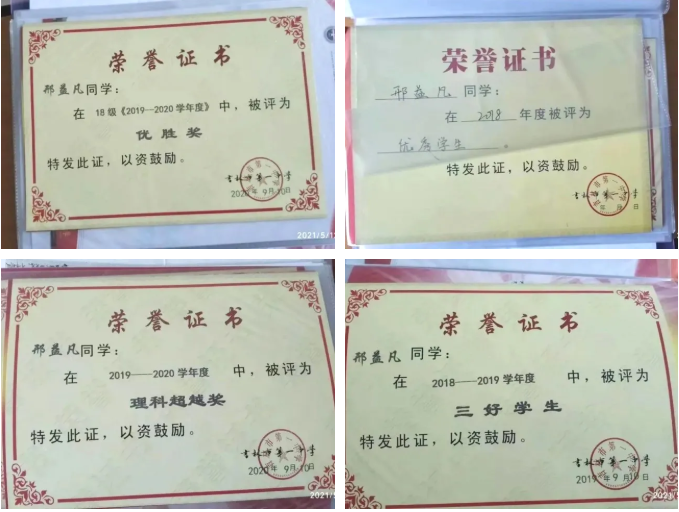 荣誉证书
邢益凡同学：
在 18级《2019—2020学年度》中，被评为
优胜奖
特发此证，以资鼓励。
吉林市第一中学
2020年9月10日
2021/5/1
荣誉证书
邢益凡 同学：
在 2018 年度被评为
优秀学生 。
特发此证，以资鼓励。
吉林市第一中学
日
荣誉证书
邢益凡同学：
在 2019——2020学年度 中，被评为
理科超越奖
特发此证，以资鼓励。
吉林市第一中学
2020年9月10日
2021/5
荣誉证书
邢益凡同学：
在 2018——2019学年度 中，被评为
三好学生
特发此证，以资鼓励。
吉林市第一中学
2019年9月10日
2021/5